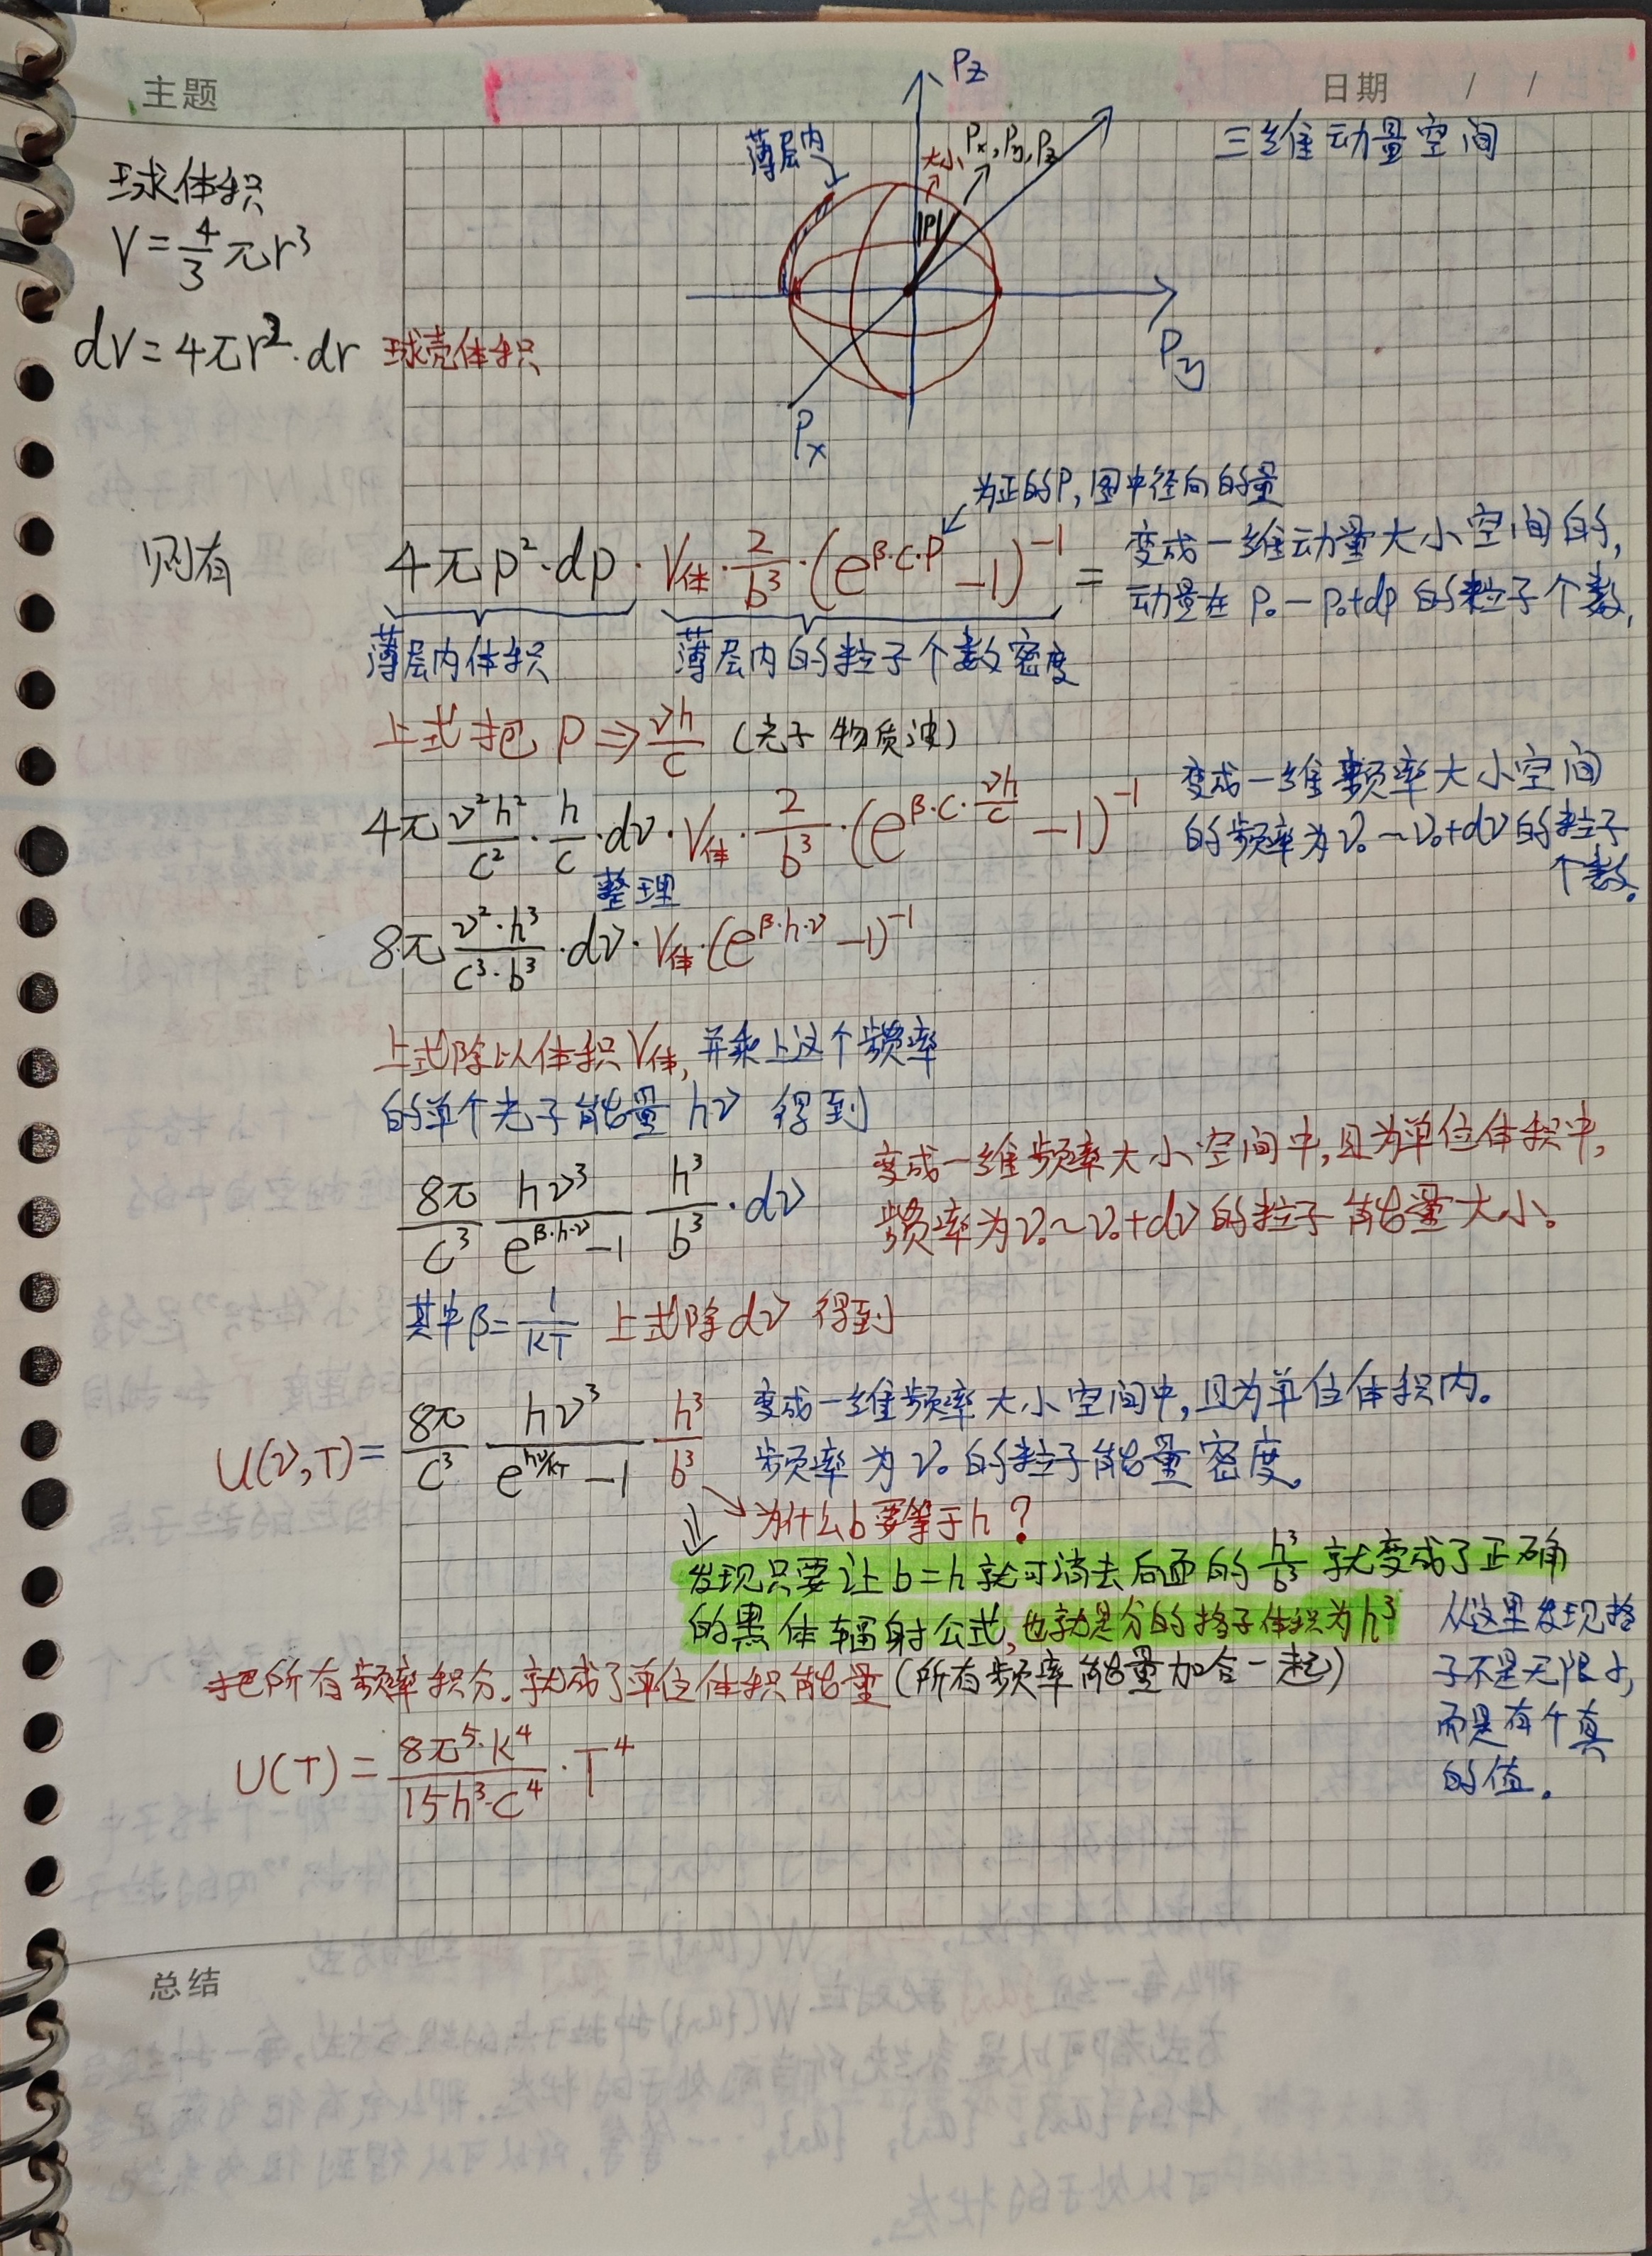 主题
日期 / /
Pz
薄层内
大小 Px, Py, Pz
三维动量空间
|P|
Py
Px
球体积
V = 4/3 πr³
dV = 4πr²·dr 球壳体积
为正的P, 图中径向的量
则有 4πp²·dp · V体 · 2/b³ · (e^(β·c·p) − 1)^(−1) = 变成一维动量大小空间的,
动量在 p₀ − p₀+dp 的粒子个数,
薄层内体积 薄层内的粒子个数密度
上式把 p ⇒ νh/c (光子物质波)
4π ν²h²/c² · h/c · dν · V体 · 2/b³ · (e^(β·c·νh/c) − 1)^(−1) 变成一维频率大小空间
的频率为ν₀ ~ ν₀+dν 的粒子
个数。
整理
8π ν²·h³/c³·b³ · dν · V体·(e^(β·h·ν) − 1)^(−1)
上式除以体积V体, 并乘上这个频率
的单个光子能量 hν 得到
8π/c³ hν³/(e^(β·h·ν) − 1) h³/b³ · dν 变成一维频率大小空间中,且为单位体积中,
频率为ν₀~ν₀+dν 的粒子能量大小。
其中β = 1/KT 上式除dν 得到
U(ν,T) = 8π/c³ hν³/(e^(hν/KT) − 1) h³/b³ 变成一维频率大小空间中,且为单位体积内。
频率为ν₀ 的粒子能量密度。
为什么b要等于h?
发现只要让 b=h 就可消去后面的 h³/b³ 就变成了正确
的黑体辐射公式, 也就是分的格子体积为h³
从这里发现格
子不是无限小,
而是有个真
的值。
把所有频率积分。就成了单位体积能量(所有频率能量加合一起)
U(T) = 8π⁵·K⁴/15h³·c⁴ · T⁴
总结